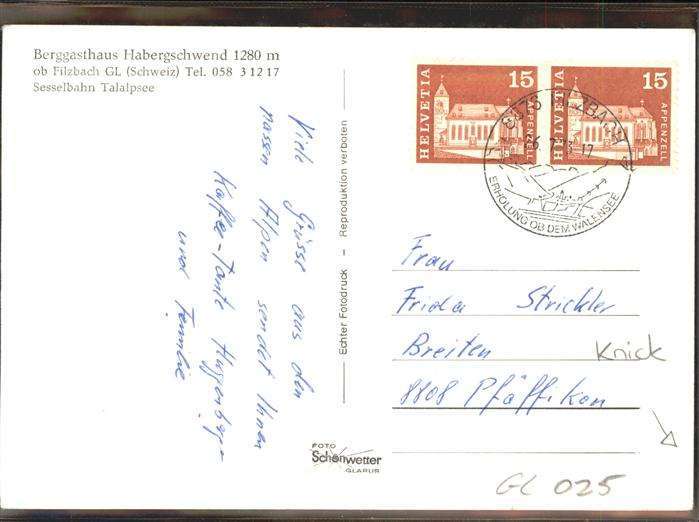 Berggasthaus Habergschwend 1280 m
ob Filzbach GL (Schweiz) Tel. 058 3 12 17
Sesselbahn Talalpsee
Viele Grüsse aus den
nassen Alpen sendet Ihnen
Kaffee-Tante Huggenberger
und Familie
Echter Fotodruck – Reproduktion verboten
FOTO
Schönwetter
GLARUS
HELVETIA 15 APPENZELL
HELVETIA 15 APPENZELL
FILZBACH
ERHOLUNG OB DEM WALENSEE
Frau
Frida Strickler
Breiten
8808 Pfäffikon
Knick
GL 025